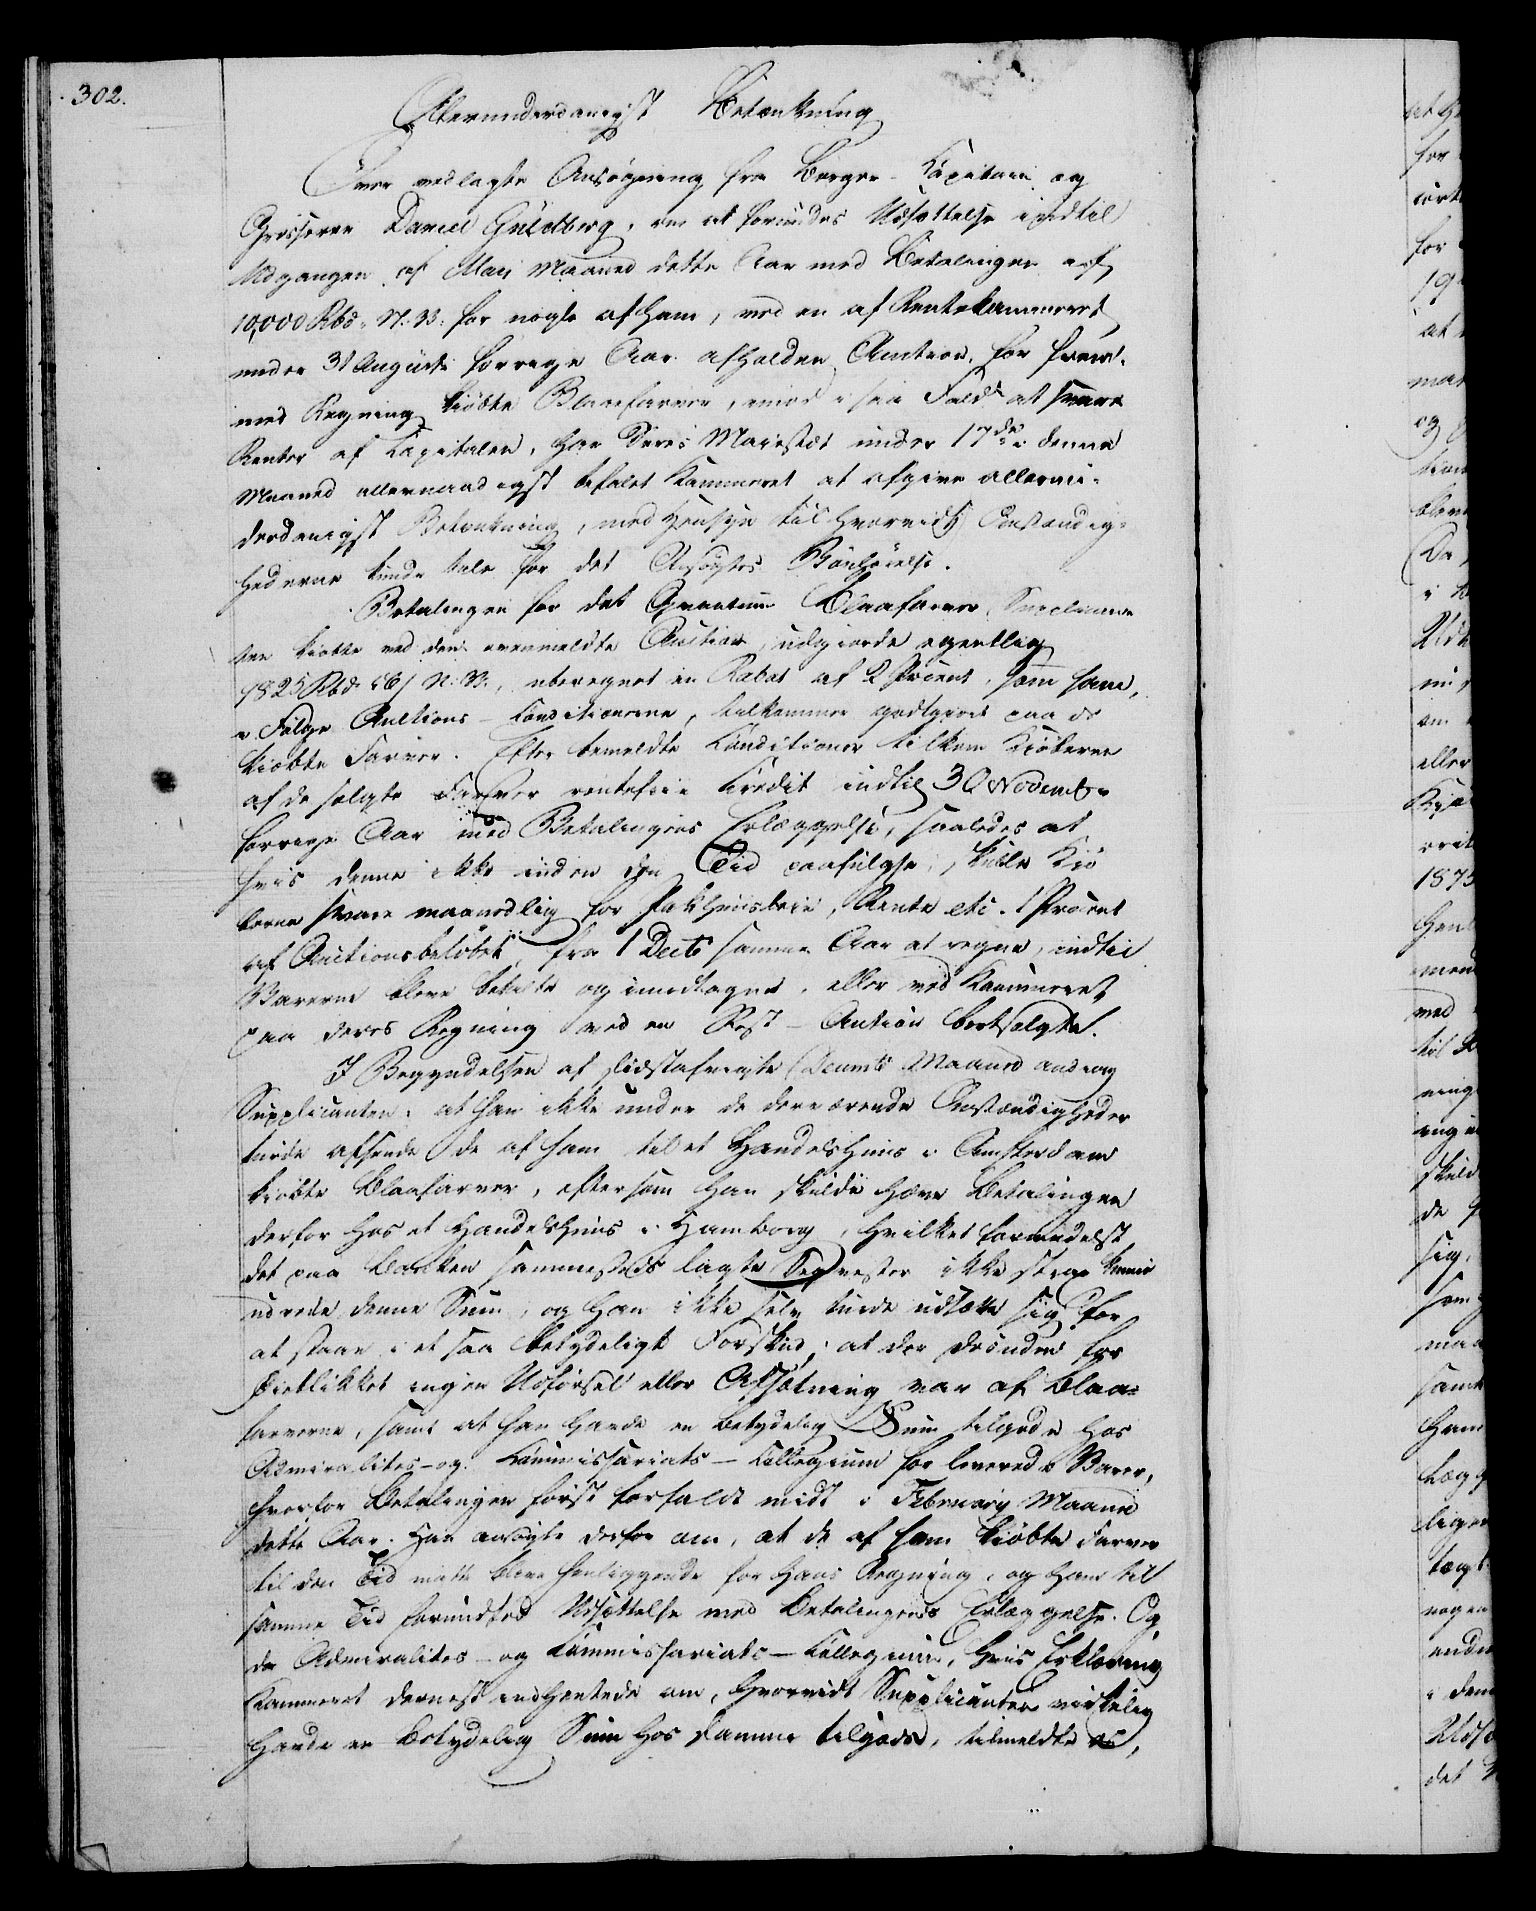 302.
Allerunderdanigst Betænkning
Over vedlagte Ansøgning fra Borger-Kapitain og
Grosserer Daniel Guldberg, om at forundes Udsættelse indtil
Udgangen af Mai Maaned dette Aar med Betalingen af
10,000 Rbd. N. V. for nogle af ham, ved en af Rentekammeret
under 31 August forrige Aar afholden Auction, for frem-
med Regning kiøbte Blaafarver, imod i saa Fald at svare
Renter af Kapitalen, har Deres Majestæt under 17de i denne
Maaned allernaadigst befalet Kammeret at afgive allerun-
derdanigst Betænkning, med Hensyn til hvorvidt Omstændig-
hederne kunde tale for det Ansøgtes Bønhørelse.
Betalingen for det Qvantum Blaafarver, Supplican-
ten kiøbte ved den ovenmeldte Auction, udgiorde egentlig
9825 Rbd. 56 s N. V., uberegnet en Rabat af 2 Procent, som ham,
i Følge Auctions-Conditionerne, tilkommer godtgiort paa de
kiøbte Farver. Efter bemeldte Conditioner tilkom Kiøberne
af de solgte Farver rentefrie Credit indtil 30 Novembr
forrige Aar med Betalingens Erlæggelse, saaledes at
hvis denne ikke inden den Tid paafulgte, skulde Kiø
berne svare maanedlig for Pakhuusleie, Rente etc. 1 Procent
af Auctionsbeløbet, fra 1 Decbr samme Aar at regne, indtil
Varerne bleve betalte og imodtagne, eller ved Kammeret
paa deres Regning ved en Post-Auction bortsolgte.
I Begyndelsen af sidstafvigte Decembr Maaned androg
Supplicanten: at han ikke under de derværende Omstændigheder
turde afsende de af ham til et Handelshuus i Amsterdam
kiøbte Blaafarver, eftersom han skulde hæve Betalingen
derfor hos et Handelshuus i Hamborg, hvilket formedelst
det paa Banken sammesteds lagte Seqvester ikke strax kunde
udrede denne Sum, og han ikke selv turde udsætte sig for
at staae i et saa betydeligt Forskud; at der desuden for
Øieblikket ingen Udførsel eller Afsætning var af Blaa-
farverne, samt at han havde en betydelig Sum tilgode hos
Admiralitets- og Commissariats-Collegium for leverede Varer,
hvorfor Betalingen først forfaldt midt i February Maaned
dette Aar. Han ansøgte derfor om, at de af ham kiøbte Farver
til den Tid maatte blive henliggende for hans Regning, og ham til
samme Tid forundtes Udsættelse med Betalingens Erlæggelse. Og
da Admiralitets- og Commissariats-Collegium, hvis Erklæring
Kammeret dernæst indhentede om, hvorvidt Supplicanten virkelig
havde en betydelig Sum hos samme tilgode, tilmeldte os,